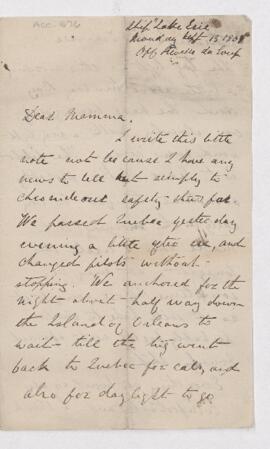 ACC. 876
Ship "Lake Erie
Monday Sept 15 190
Off Rivière du Loup
Dear Mamma.
I write this little
note not because I have any
news to tell but simply to
our safety thus far.
We passed Quebec yesterday
evening a little after six, and
changed pilots without
stopping. We anchored for the
night about half way down
the Island of Orleans to
wait till the tug went
back to Quebec for
also for daylight to go